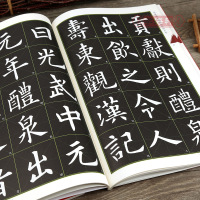 貢獻則醴泉
出飲之令人
壽東觀漢記
曰光武中元
元年醴泉出